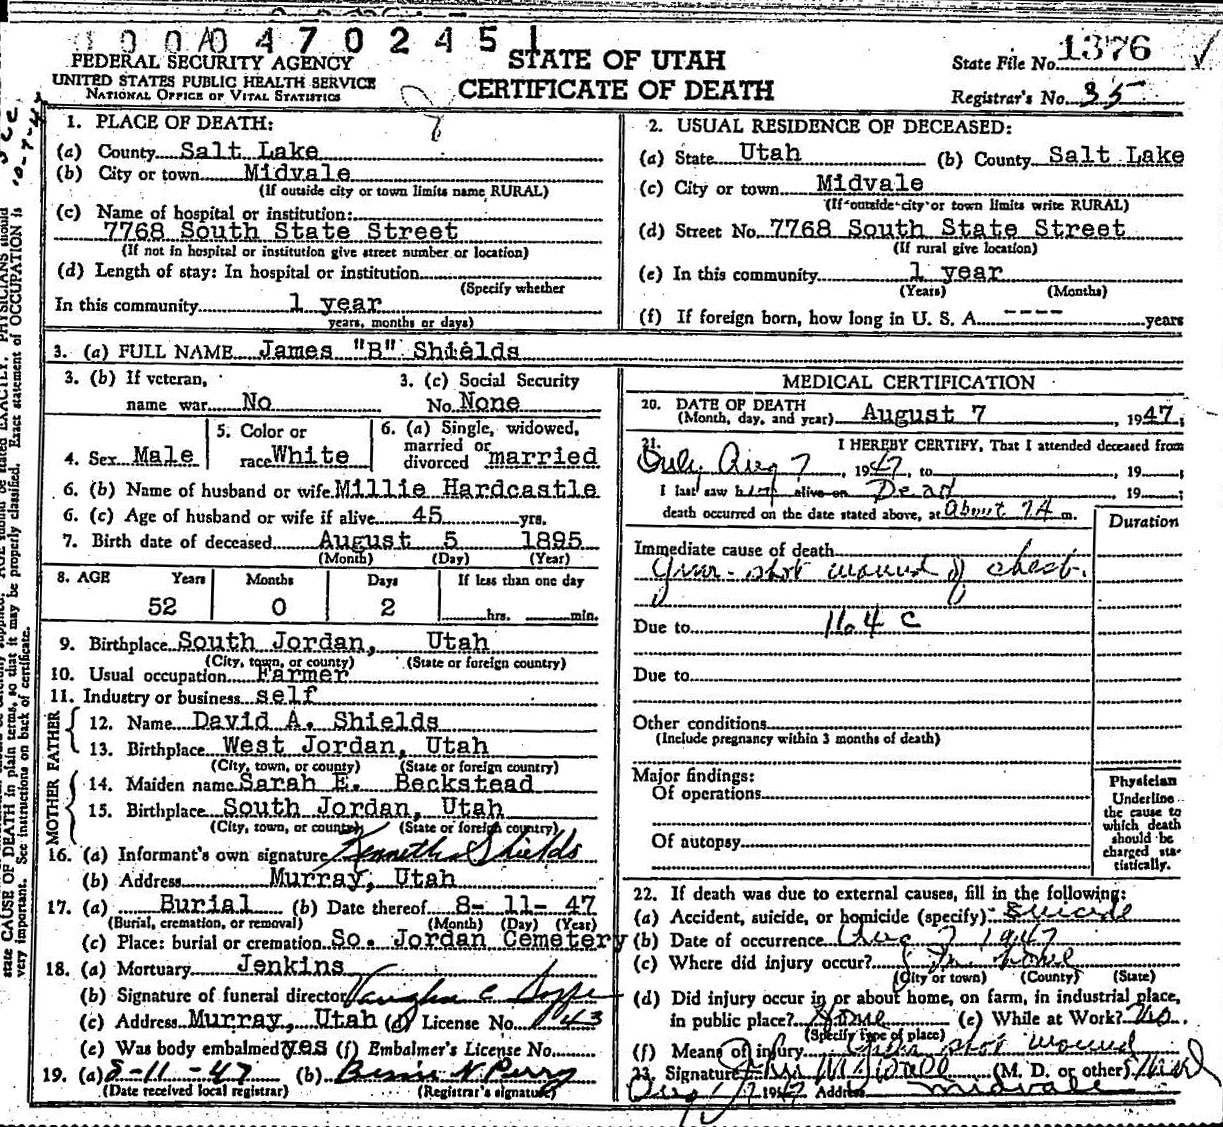 100A0470245 1
FEDERAL SECURITY AGENCY
UNITED STATES PUBLIC HEALTH SERVICE
NATIONAL OFFICE OF VITAL STATISTICS
STATE OF UTAH
CERTIFICATE OF DEATH
State File No. 1376
Registrar's No. 35
1. PLACE OF DEATH:
(a) County Salt Lake
(b) City or town Midvale
(If outside city or town limits name RURAL)
(c) Name of hospital or institution:
7768 South State Street
(If not in hospital or institution give street number or location)
(d) Length of stay: In hospital or institution
(Specify whether
In this community 1 year
years, months or days)
2. USUAL RESIDENCE OF DECEASED:
(a) State Utah (b) County Salt Lake
(c) City or town Midvale
(If outside city or town limits write RURAL)
(d) Street No. 7768 South State Street
(If rural give location)
(e) In this community 1 year
(Years) (Months)
(f) If foreign born, how long in U. S. A. ---- years
3. (a) FULL NAME James "B" Shields
3. (b) If veteran,
name war No
3. (c) Social Security
No. None
4. Sex Male
5. Color or
race White
6. (a) Single, widowed,
married or
divorced married
6. (b) Name of husband or wife Millie Hardcastle
6. (c) Age of husband or wife if alive 45 yrs.
7. Birth date of deceased August 5 1895
(Month) (Day) (Year)
8. AGE Years Months Days If less than one day
52 0 2 hrs. min.
9. Birthplace South Jordan, Utah
(City, town, or county) (State or foreign country)
10. Usual occupation Farmer
11. Industry or business self
FATHER
12. Name David A. Shields
13. Birthplace West Jordan, Utah
(City, town, or county) (State or foreign country)
MOTHER
14. Maiden name Sarah E. Beckstead
15. Birthplace South Jordan, Utah
(City, town, or county) (State or foreign country)
16. (a) Informant's own signature Kenneth Shields
(b) Address Murray, Utah
17. (a) Burial (b) Date thereof 8- 11- 47
(Burial, cremation, or removal) (Month) (Day) (Year)
(c) Place: burial or cremation So. Jordan Cemetery
18. (a) Mortuary Jenkins
(b) Signature of funeral director Vaughn C
(c) Address Murray, Utah (d) License No. 143
(e) Was body embalmed yes (f) Embalmer's License No.
19. (a) 8-11-47 (b) Bessie N. Perry
(Date received local registrar) (Registrar's signature)
MEDICAL CERTIFICATION
20. DATE OF DEATH
(Month, day, and year) August 7 , 1947;
21. I HEREBY CERTIFY, That I attended deceased from
Aug 7, 1947, to , 19 ;
I last saw him alive on Dead , 19 ;
death occurred on the date stated above, at About 7A m.
Duration
Immediate cause of death
Gun-shot wound of chest.
Due to 164 c
Due to
Other conditions
(Include pregnancy within 3 months of death)
Major findings:
Of operations
Of autopsy
Physician
Underline
the cause to
which death
should be
charged sta-
tistically.
22. If death was due to external causes, fill in the following:
(a) Accident, suicide, or homicide (specify) Suicide
(b) Date of occurrence Aug 7 1947
(c) Where did injury occur? In home
(City or town) (County) (State)
(d) Did injury occur in or about home, on farm, in industrial place,
in public place? Home (e) While at Work? No
(Specify type of place)
(f) Means of injury Gun shot wound
23. Signature (M. D. or other)
Aug 1947 Address Midvale
state CAUSE OF DEATH in plain terms, so that it may be properly classified. Exact statement of OCCUPATION is
very important. See instructions on back of certificate.